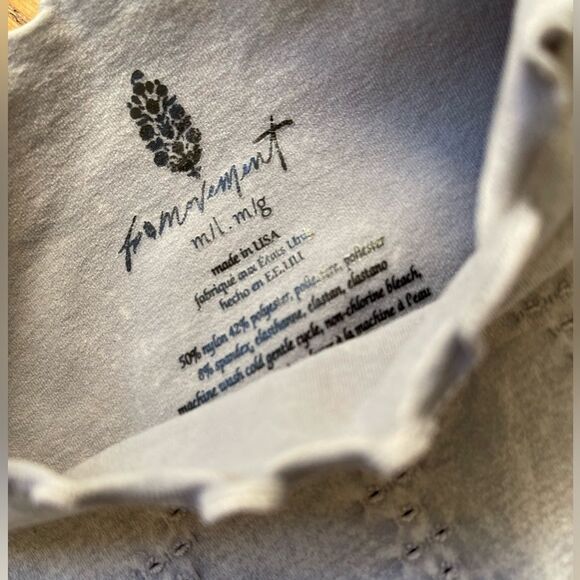 fp movement
m/l. m/g
made in USA
fabriqué aux États Unis
hecho en E.E.UU
50% nylon 42% polyester, poliester, poliester
8% spandex, élasthanne, elastan, elastano
machine wash cold gentle cycle, non-chlorine bleach,
à la machine à l'eau